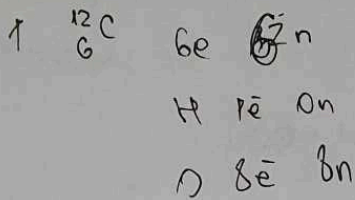 1 ¹²₆C 6e n
H 1ē 0n
O 8ē 8n